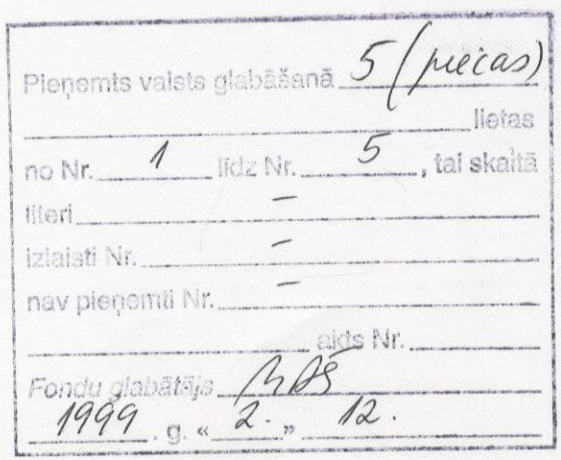 Pieņemts valsts glabāšanā 5 (piecas)
lietas
no Nr. 1 līdz Nr. 5, tai skaitā
literi –
izlaisti Nr. –
nav pieņemti Nr. –
akts Nr.
Fondu glabātājs
1999. g. « 2. » 12.